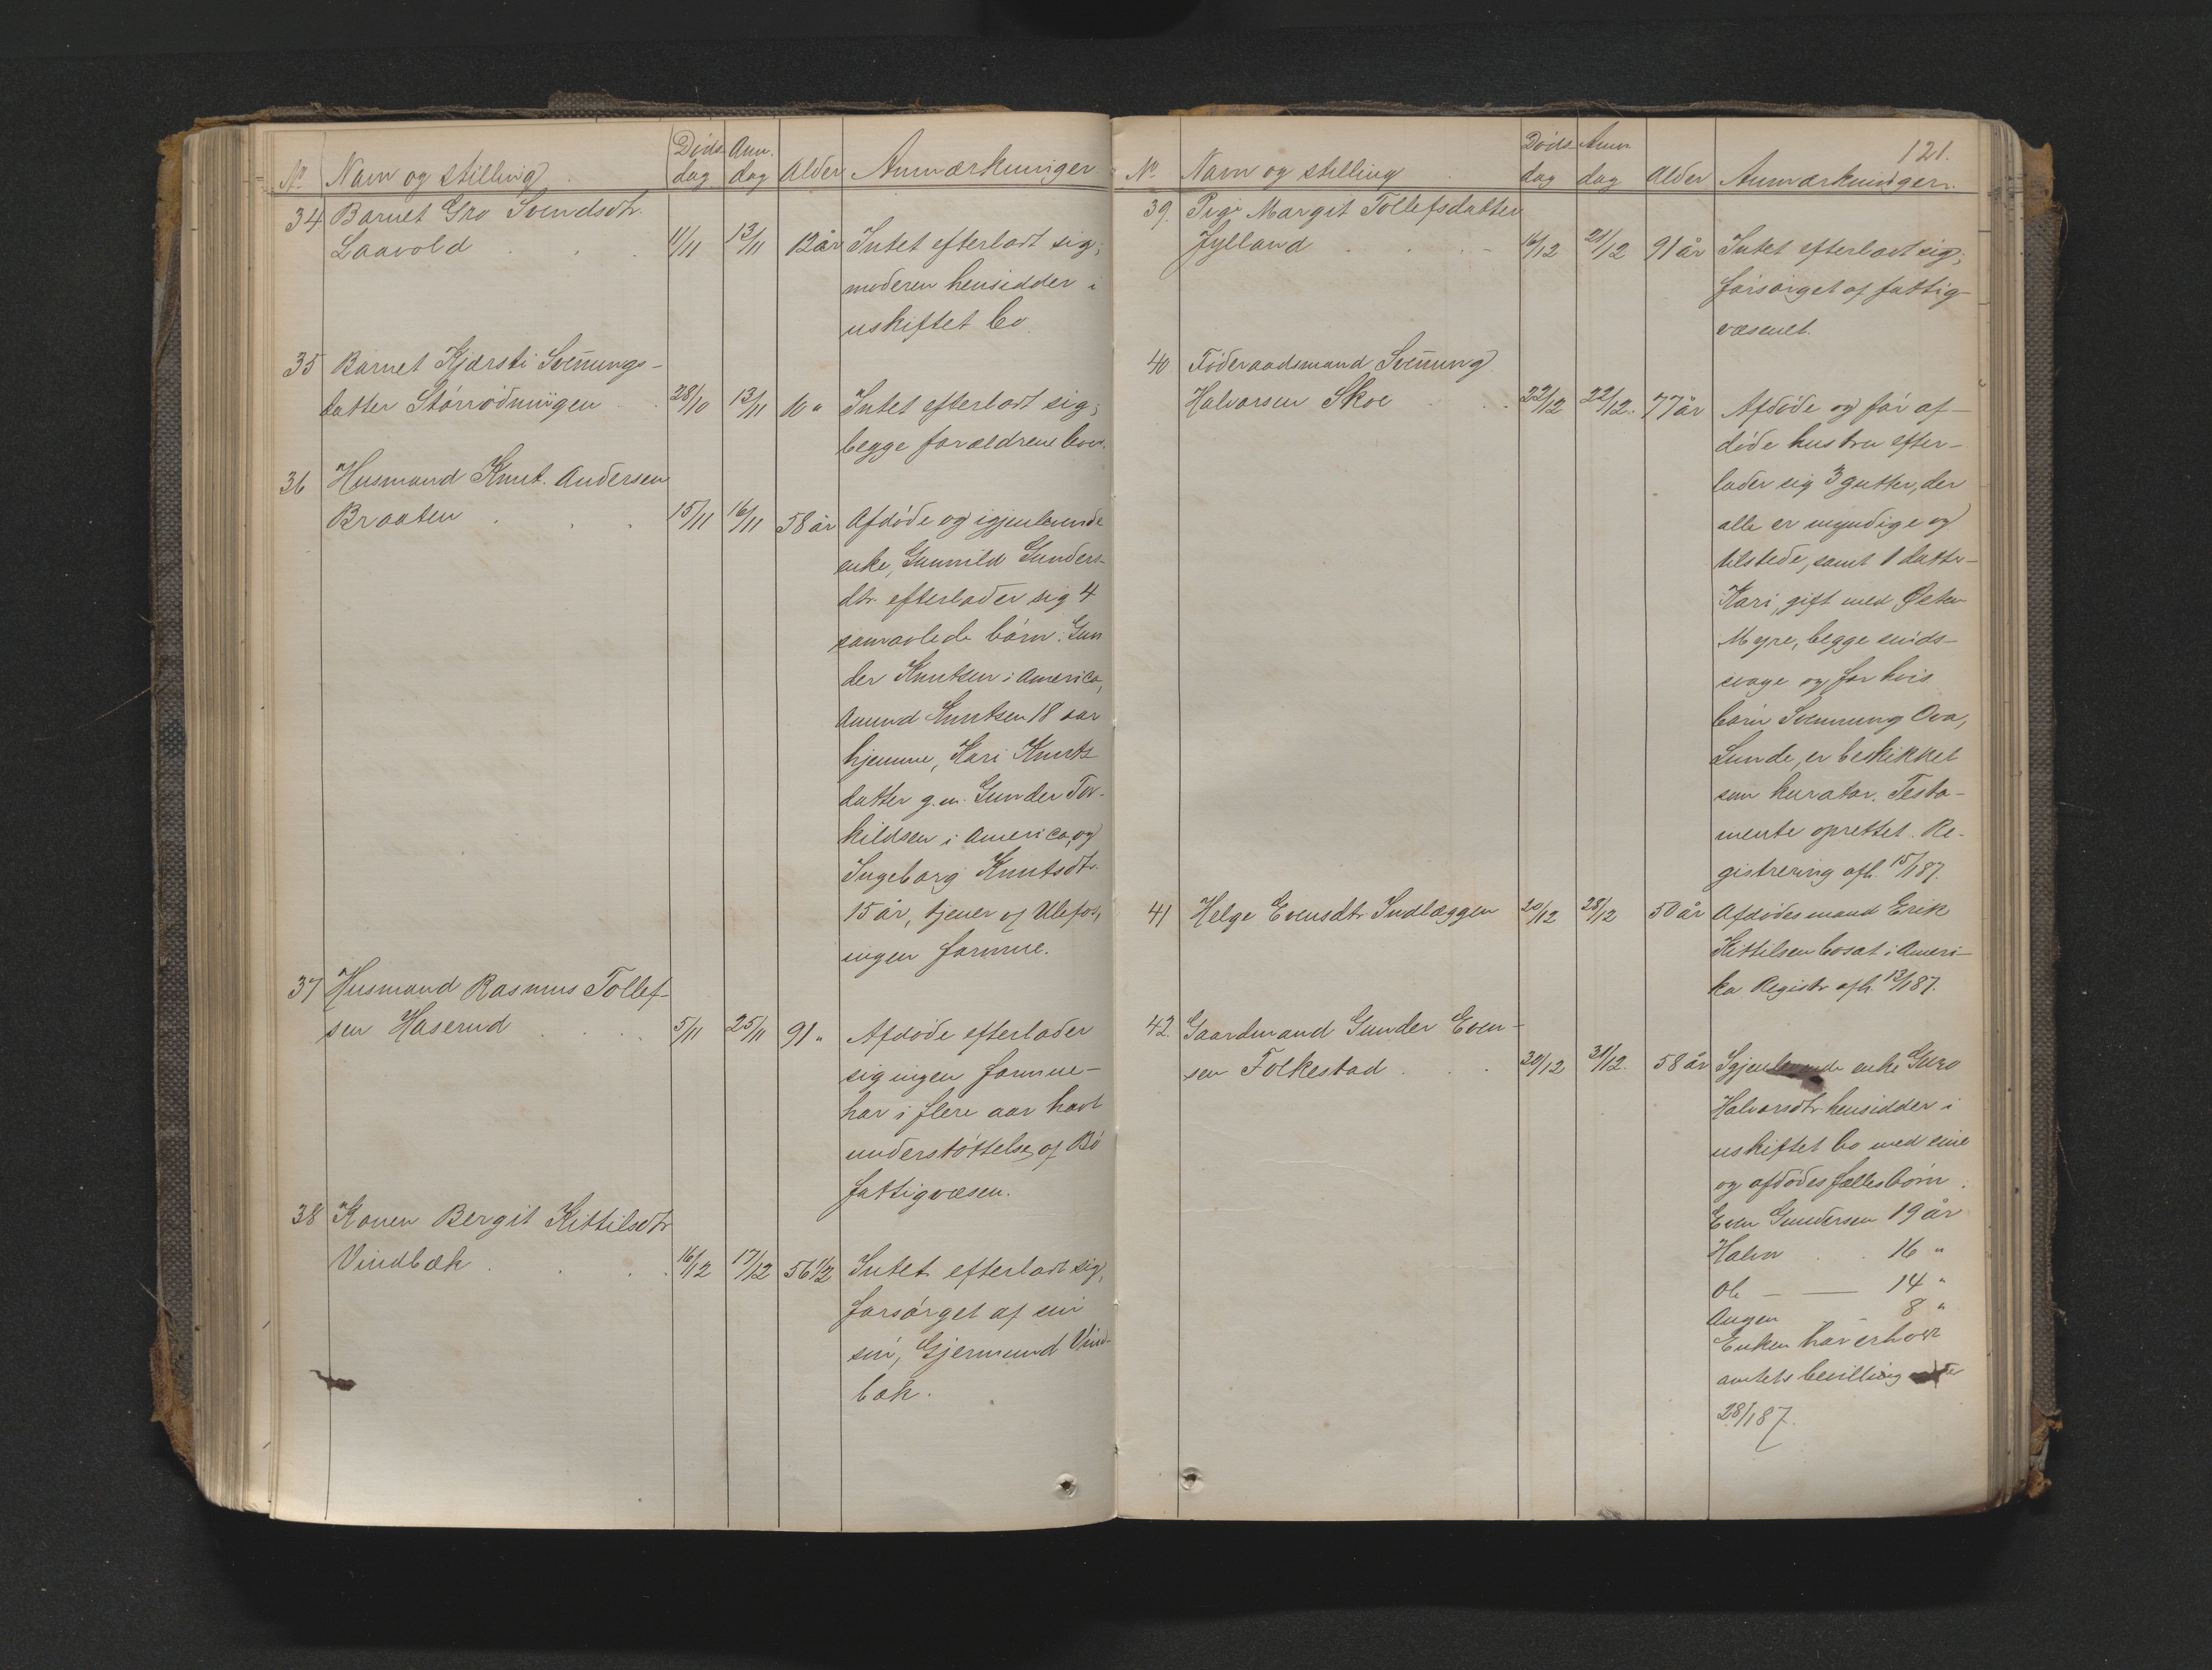 No Navn og stilling Døds dag Anm. dag Alder Anmærkninger
34 Barnet Gro Svendsdtr.
Laavold 11/11 13/11 12 år Intet efterladt sig;
moderen hensidder i
uskiftet bo.
35 Barnet Kjærsti Svennungs-
datter Størrødningen 28/10 13/11 10 " Intet efterladt sig;
begge forældrene lever.
36 Husmand Knut Andersen
Braaten 15/11 16/11 58 år Afdøde og igjenlevende
enke, Gunnild Gunders-
dtr. efterlader sig 4
samavlede børn: Gun
der Knutsen i America,
Amund Knutsen 18 aar
hjemme, Kari Knuts
datter g. m. Gunder Tor-
kildsen i America, og
Ingeborg Knutsdtr.
15 år, tjener på Ulefos,
ingen formue.
37 Husmand Rasmus Tollef-
sen Haserud 5/11 25/11 91 " Afdøde efterlader
sig ingen formue-
har i flere aar havt
understøttelse af Bø
fattigvæsen.
38 Konen Bergit Kittilsdtr
Vindbæk 16/12 17/12 56 1/2 Intet efterladt sig,
forsørget af sin
søn, Gjermund Vind-
bæk.
121.
No Navn og stilling Døds dag Anm dag Alder Anmærkninger.
39. Pige Margit Tollefsdatter
Jylland 16/12 21/12 91 år Intet efterladt sig;
forsørget af fattig-
væsenet.
40 Føderaadsmand Svennung
Halvorsen Skoe 22/12 22/12. 77 år Afdøde og før af-
døde hustru efter-
lader sig 3 gutter, der
alle er myndige og
tilstede, samt 1 datter-
Kari, gift med Østen
Myre, begge sinds-
svage og for hvis
børn Svennung Ova,
Lunde, er beskikket
som kurator. Testa-
mente oprettet. Re-
gistrering afh. 15/1 87.
41 Helge Evensdtr. Indlæggen 20/12 28/12 50 år Afdødes mand Erik
Kittilsen bosat i Ameri-
ka Registr. afh. 13/1 87.
42. Gaardmand Gunder Even-
sen Folkestad 30/12 31/12. 58 år Igjenlevende enke Guro
Halvorsdtr. hensidder i
uskiftet bo med sine
og afdødes fællesbørn.
Even Gundersen 19 år
Halvor 16 "
Ole — — 14 "
Aagen 8 "
Enken har erhvervet
amtets bevilling
28/1 87.